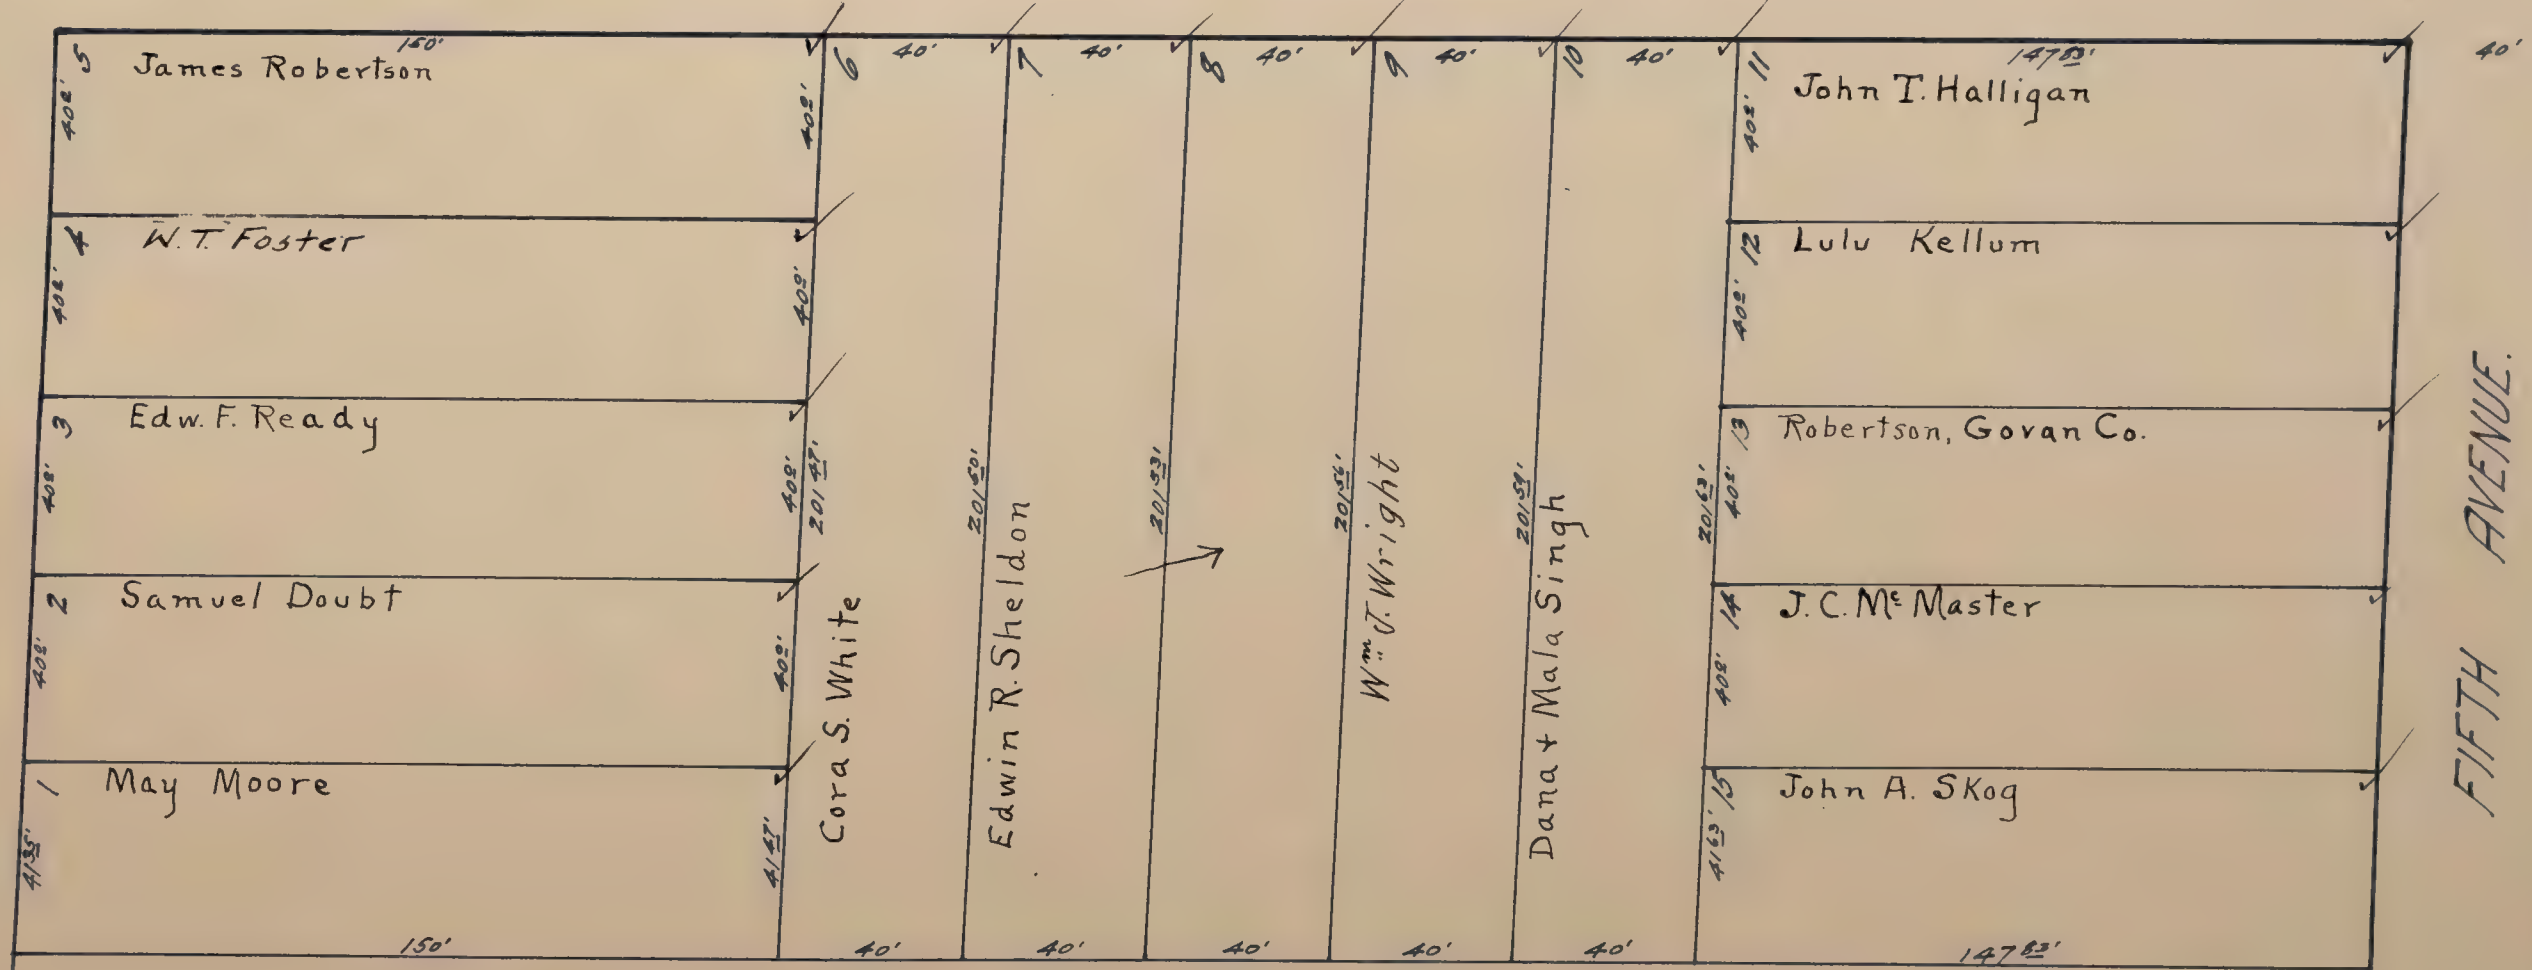 150'
5
James Robertson
40 0/'
40 0/'
4
W. T. Foster
40 0/'
40 0/'
3
Edw. F. Ready
40 0/'
40 0/'
2
Samuel Doubt
40 0/'
40 0/'
1
May Moore
41 35'
41 47'
150'
6
40'
201 47'
Cora S. White
40'
7
40'
201 50'
Edwin R. Sheldon
40'
8
40'
201 53'
40'
9
40'
201 56'
Wm J. Wright
40'
10
40'
201 59'
Dana + Mala Singh
40'
11
147 83'
John T. Halligan
40 0/'
12
Lulu Kellum
40 0/'
13
Robertson, Govan Co.
40 0/'
201 63'
14
J. C. Mc Master
40 0/'
15
John A. Skog
41 63'
147 83'
40'
FIFTH AVENUE.